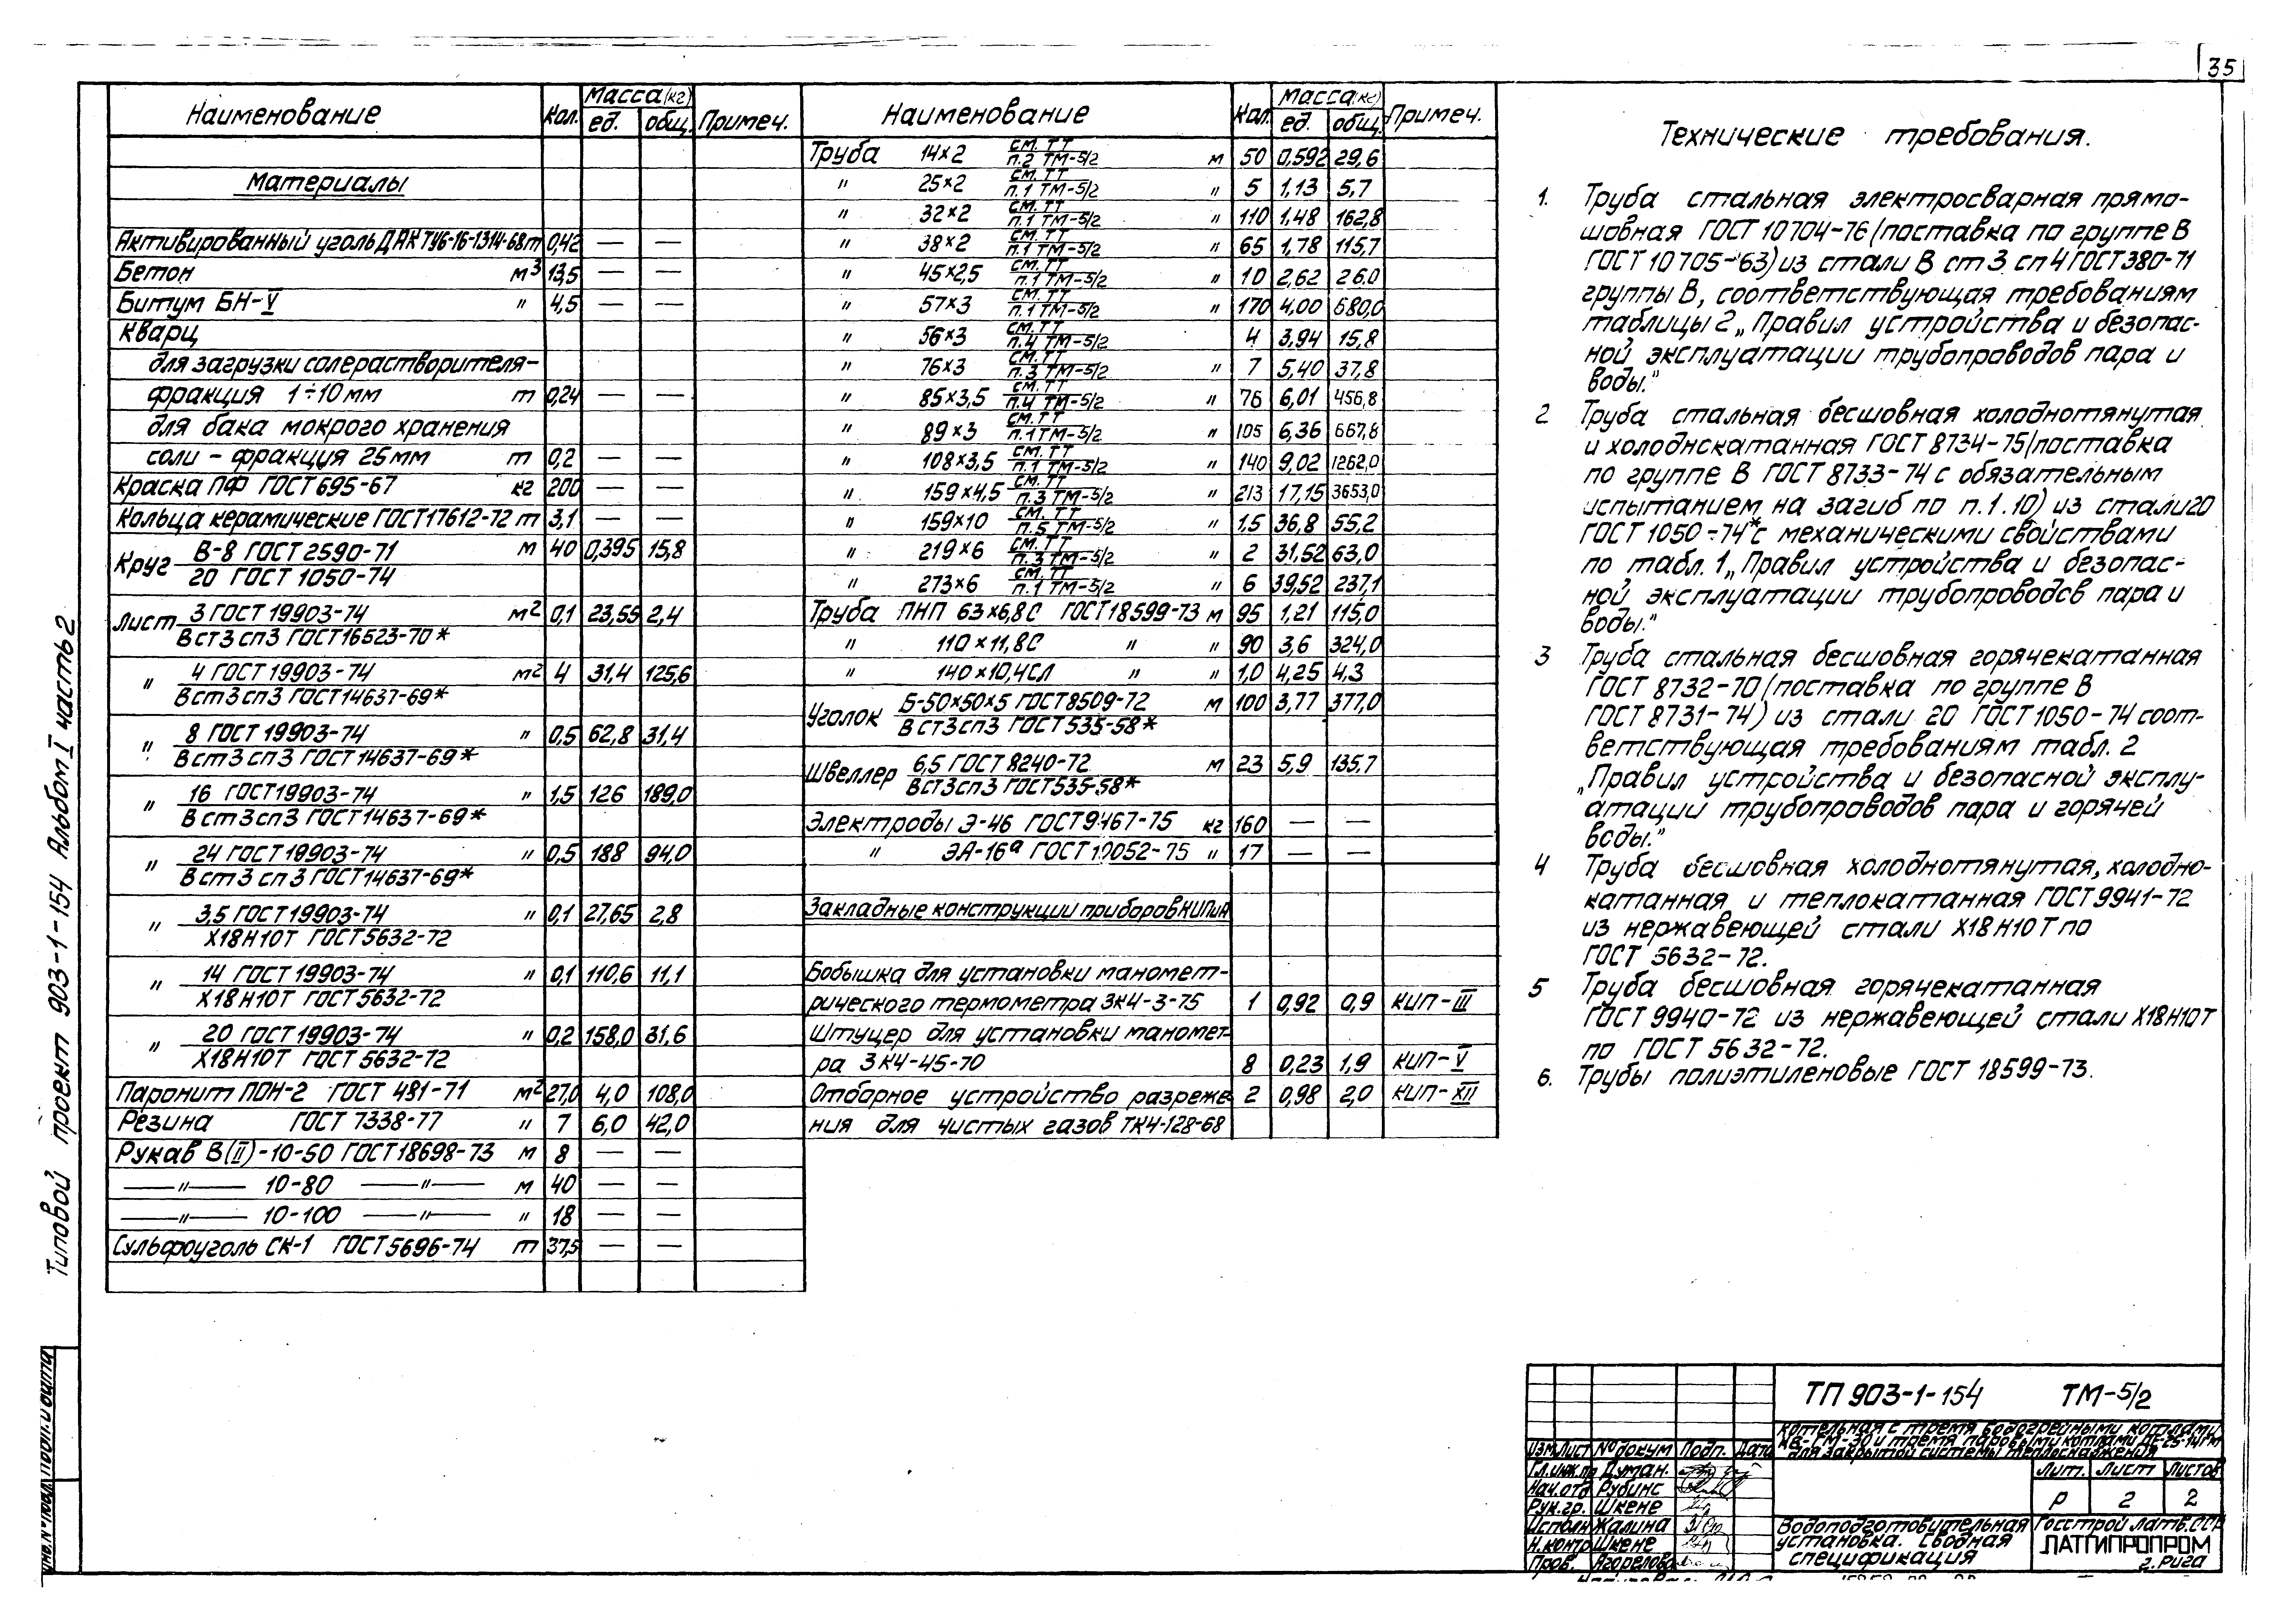 35
Типовой проект 903-1-154 Альбом I часть 2
Наименование Кол. Масса (кг) ед. общ. Примеч.
Материалы
Активированный уголь ДАК ТУ6-16-1314-68 т 0,42 — —
Бетон м³ 13,5 — —
Битум БН-V " 4,5 — —
Кварц
для загрузки солерастворителя-
фракция 1÷10 мм т 0,24 — —
для бака мокрого хранения
соли - фракция 25 мм т 0,2 — —
Краска ПФ ГОСТ 695-67 кг 200 — —
Кольца керамические ГОСТ 17612-72 т 3,1 — —
Круг В-8 ГОСТ 2590-71 м 40 0,395 15,8
20 ГОСТ 1050-74
Лист 3 ГОСТ 19903-74 м² 0,1 23,55 2,4
В ст3 сп3 ГОСТ 16523-70*
" 4 ГОСТ 19903-74 м² 4 31,4 125,6
В ст3 сп3 ГОСТ 14637-69*
" 8 ГОСТ 19903-74 " 0,5 62,8 31,4
В ст3 сп3 ГОСТ 14637-69*
" 16 ГОСТ 19903-74 " 1,5 126 189,0
В ст3 сп3 ГОСТ 14637-69*
" 24 ГОСТ 19903-74 " 0,5 188 94,0
В ст3 сп3 ГОСТ 14637-69*
" 3,5 ГОСТ 19903-74 " 0,1 27,65 2,8
Х18Н10Т ГОСТ 5632-72
" 14 ГОСТ 19903-74 " 0,1 110,6 11,1
Х18Н10Т ГОСТ 5632-72
" 20 ГОСТ 19903-74 " 0,2 158,0 31,6
Х18Н10Т ГОСТ 5632-72
Паронит ПОН-2 ГОСТ 481-71 м² 27,0 4,0 108,0
Резина ГОСТ 7338-77 " 7 6,0 42,0
Рукав В(II)-10-50 ГОСТ 18698-73 м 8 — —
—"— 10-80 —"— м 40 — —
—"— 10-100 —"— " 18 — —
Сульфоуголь СК-1 ГОСТ 5696-74 т 37,5 — —
Наименование Кол. Масса (кг) ед. общ. Примеч.
Труба 14×2 см. ТТ п.2 ТМ-5/2 м 50 0,592 29,6
" 25×2 см. ТТ п.1 ТМ-5/2 " 5 1,13 5,7
" 32×2 см. ТТ п.1 ТМ-5/2 " 110 1,48 162,8
" 38×2 см. ТТ п.1 ТМ-5/2 " 65 1,78 115,7
" 45×2,5 см. ТТ п.1 ТМ-5/2 " 10 2,62 26,0
" 57×3 см. ТТ п.1 ТМ-5/2 " 170 4,00 680,0
" 56×3 см. ТТ п.4 ТМ-5/2 4 3,94 15,8
" 76×3 см. ТТ п.3 ТМ-5/2 " 7 5,40 37,8
" 85×3,5 см. ТТ п.4 ТМ-5/2 " 76 6,01 456,8
" 89×3 см. ТТ п.1 ТМ-5/2 " 105 6,36 667,8
" 108×3,5 см. ТТ п.1 ТМ-5/2 " 140 9,02 1262,0
" 159×4,5 см. ТТ п.3 ТМ-5/2 " 213 17,15 3653,0
" 159×10 см. ТТ п.5 ТМ-5/2 " 1,5 36,8 55,2
" 219×6 см. ТТ п.3 ТМ-5/2 " 2 31,52 63,0
" 273×6 см. ТТ п.1 ТМ-5/2 " 6 39,52 237,1
Труба ПНП 63×6,8С ГОСТ 18599-73 м 95 1,21 115,0
" 110×11,8С " " 90 3,6 324,0
" 140×10,4СЛ " " 1,0 4,25 4,3
Уголок Б-50×50×5 ГОСТ 8509-72 м 100 3,77 377,0
В ст3 сп3 ГОСТ 535-58*
Швеллер 6,5 ГОСТ 8240-72 м 23 5,9 135,7
Вст3сп3 ГОСТ 535-58*
Электроды Э-46 ГОСТ 9467-75 кг 160 — —
" ЭА-1бª ГОСТ 10052-75 " 17 — —
Закладные конструкции приборов КИПиА
Бобышка для установки маномет-
рического термометра ЗК4-3-75 1 0,92 0,9 КИП-III
Штуцер для установки маномет-
ра ЗК4-45-70 8 0,23 1,9 КИП-V
Отборное устройство разреже- 2 0,98 2,0 КИП-XII
ния для чистых газов ТК4-128-68
Технические требования.
1. Труба стальная электросварная прямо-
шовная ГОСТ 10704-76 (поставка по группе В
ГОСТ 10705-63) из стали В ст 3 сп 4 ГОСТ 380-71
группы В, соответствующая требованиям
таблицы 2 „Правил устройства и безопас-
ной эксплуатации трубопроводов пара и
воды."
2 Труба стальная бесшовная холоднотянутая
и холоднокатанная ГОСТ 8734-75 (поставка
по группе В ГОСТ 8733-74 с обязательным
испытанием на загиб по п.1.10) из стали 20
ГОСТ 1050-74* с механическими свойствами
по табл. 1 „Правил устройства и безопас-
ной эксплуатации трубопроводов пара и
воды."
3 Труба стальная бесшовная горячекатанная
ГОСТ 8732-70 (поставка по группе В
ГОСТ 8731-74) из стали 20 ГОСТ 1050-74 соот-
ветствующая требованиям табл. 2
„Правил устройства и безопасной эксплу-
атации трубопроводов пара и горячей
воды."
4 Труба бесшовная холоднотянутая, холодно-
катанная и теплокатанная ГОСТ 9941-72
из нержавеющей стали Х18Н10Т по
ГОСТ 5632-72.
5 Труба бесшовная горячекатанная
ГОСТ 9940-72 из нержавеющей стали Х18Н10Т
по ГОСТ 5632-72.
6. Трубы полиэтиленовые ГОСТ 18599-73.
ТП 903-1-154 ТМ-5/2
Котельная с тремя водогрейными котлами
КВ-ТМ-30 и тремя паровыми котлами ДЕ-25-14ГМ
для закрытой системы теплоснабжения
Изм. Лист № докум Подп. Дата
Гл.инж.пр Думан.
Нач.отд Рубинс
Рук.гр. Шкене
Исполн Жалина
Н.контр Шкене
Пров. Агорелова
Лит. Лист Листов
Р 2 2
Водоподготовительная
установка. Сводная
спецификация
Госстрой латв.ССР
ЛАТГИПРОПРОМ
г. Рига
Инв.№ подл. Подп. и дата